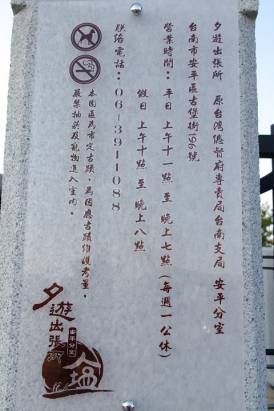 夕遊出張所　原台灣總督府專賣局台南支局　安平分室
台南市安平區古堡街196號
營業時間：平日 上午十一點 至 晚上七點（每週一公休）
假日 上午十點 至 晚上八點
聯絡電話：06-3911088
本園區為市定古蹟，為因應古蹟維護考量，
嚴禁抽菸及寵物進入室內。
夕遊出張所
安平分室
鹽